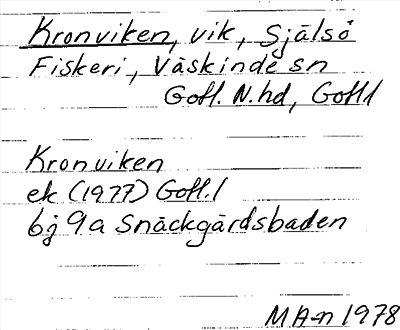 Kronviken, vik, Själsö
Fiskeri, Väskinde sn
Gotl. N. hd, Gotl l
Kronviken
ek (1977) Gotl. l
bj 9a Snäckgärdsbaden
MA-n 1978